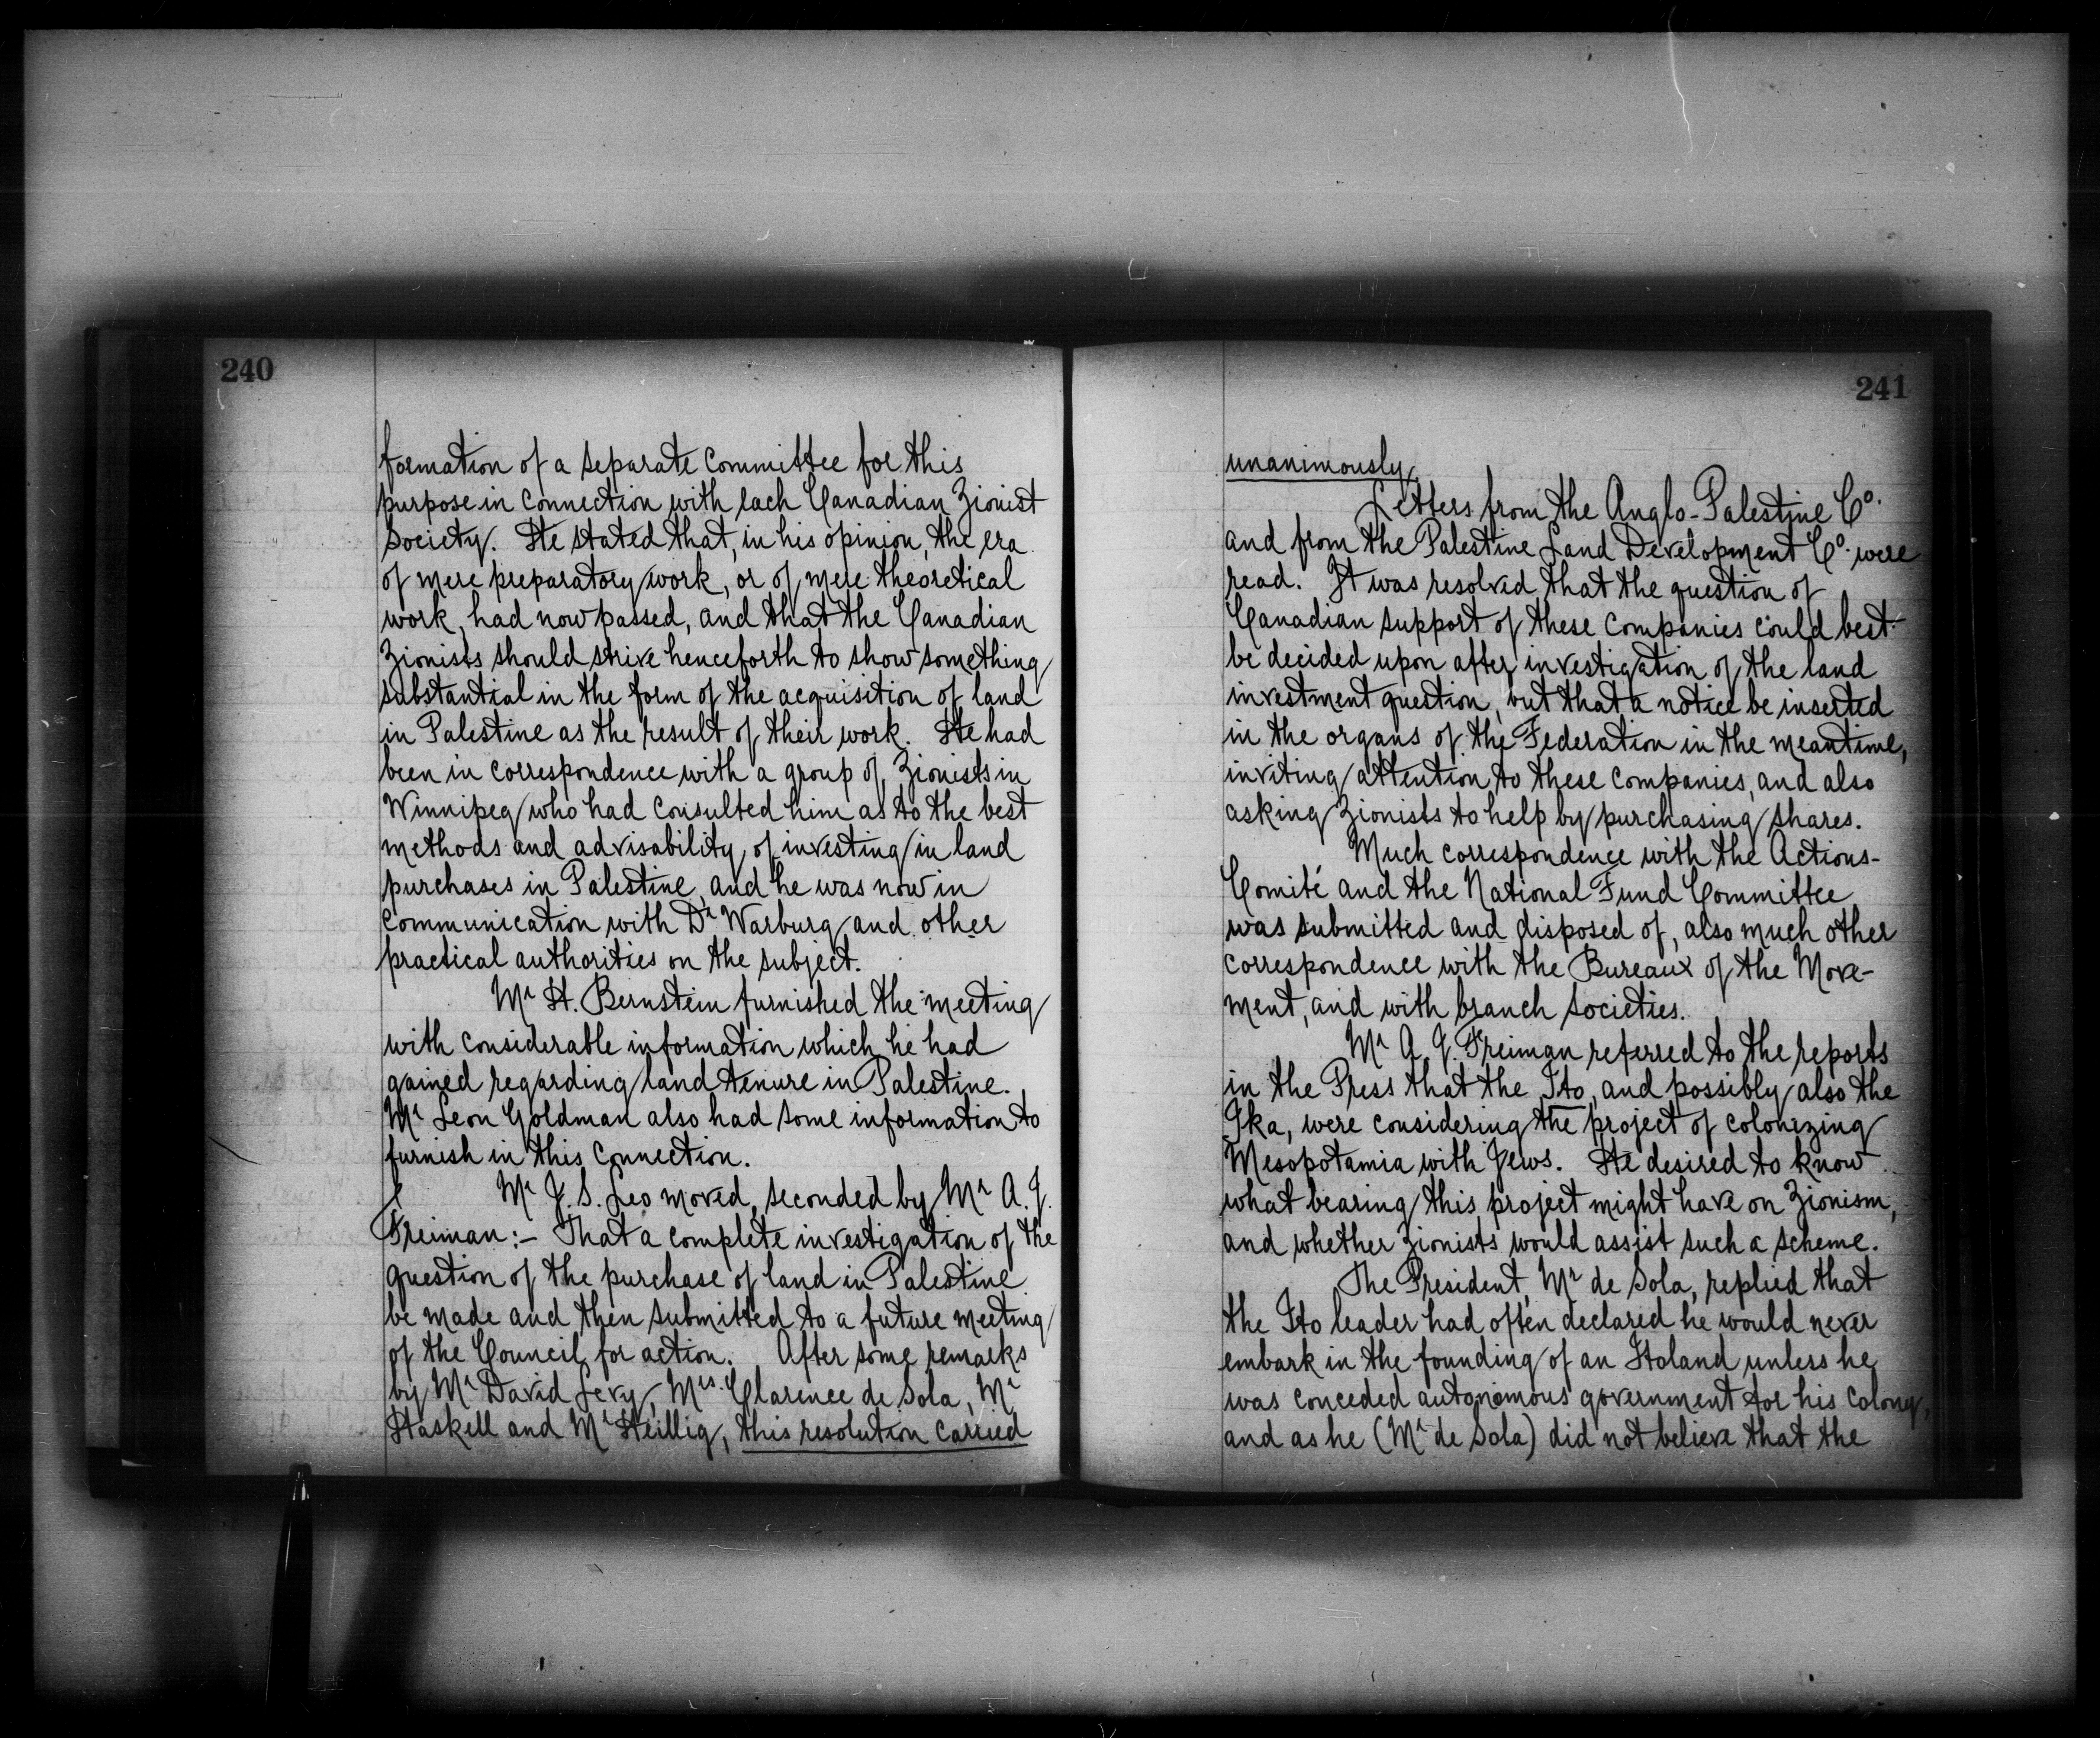 240
formation of a separate committee for this
purpose in connection with each Canadian Zionist
Society. He stated that, in his opinion, the era
of mere preparatory work, or of mere theoretical
work, had now passed, and that the Canadian
Zionists should strive henceforth to show something
substantial in the form of the acquisition of land
in Palestine as the result of their work. He had
been in correspondence with a group of Zionists in
Winnipeg who had consulted him as to the best
methods and advisability of investing in land
purchases in Palestine, and he was now in
communication with Dr Warburg and other
practical authorities on the subject.
Mr H. Bernstein furnished the meeting
with considerable information which he had
gained regarding land tenure in Palestine.
Mr Leon Goldman also had some information to
furnish in this connection.
Mr J. S. Leo moved, seconded by Mr A. J.
Freiman:- That a complete investigation of the
question of the purchase of land in Palestine
be made and then submitted to a future meeting
of the Council for action. After some remarks
by Mr David Levy, Mrs. Clarence de Sola, Mr
Haskell and Mr Heillig, this resolution carried
241
unanimously
Letters from the Anglo-Palestine Co.
and from the Palestine Land Development Co. were
read. It was resolved that the question of
Canadian support of these companies could best
be decided upon after investigation of the land
investment question, but that a notice be inserted
in the organs of the Federation in the meantime,
inviting attention to these companies, and also
asking Zionists to help by purchasing shares.
Much correspondence with the Actions-
Comité and the National Fund Committee
was submitted and disposed of, also much other
correspondence with the Bureaux of the Move-
ment, and with branch societies.
Mr A J. Freiman referred to the reports
in the Press that the Ito, and possibly also the
Ika, were considering the project of colonizing
Mesopotamia with Jews. He desired to know
what bearing this project might have on Zionism,
and whether Zionists would assist such a scheme.
The President, Mr de Sola, replied that
the Ito leader had often declared he would never
embark in the founding of an Itoland unless he
was conceded autonomous government for his colony,
and as he (Mr de Sola) did not believe that the